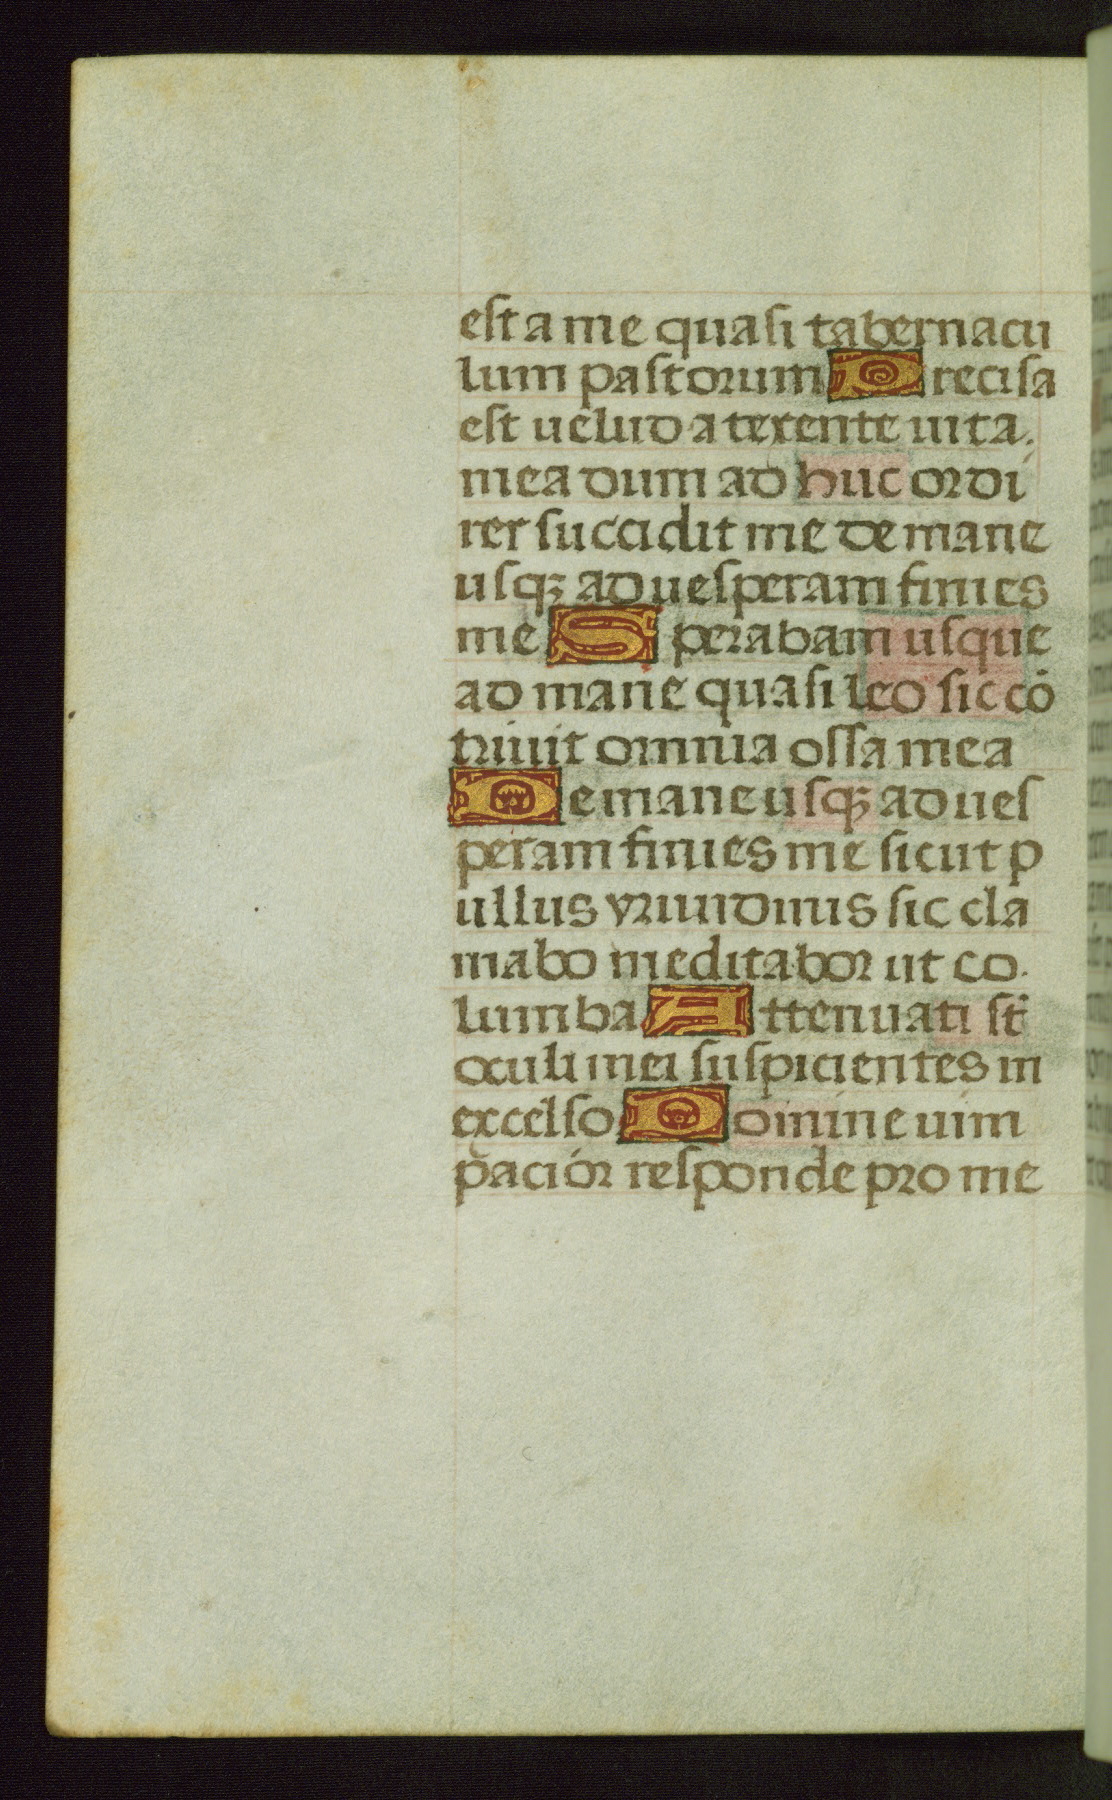 est a me quasi tabernacu
lum pastorum Precisa
est uelud a texente uita.
mea dum ad huc ordi
rer succidit me de mane
usqꝫ ad uesperam finies
me Sperabam usque
ad mane quasi leo sic cō
triuit omnia ossa mea
De mane usqꝫ ad ues
peram finies me sicut p
ullus yrundinis sic cla
mabo meditabor ut co.
lumba Attenuati st̄
oculi mei suspicientes in
excelso Domine uim
pacior responde pro me